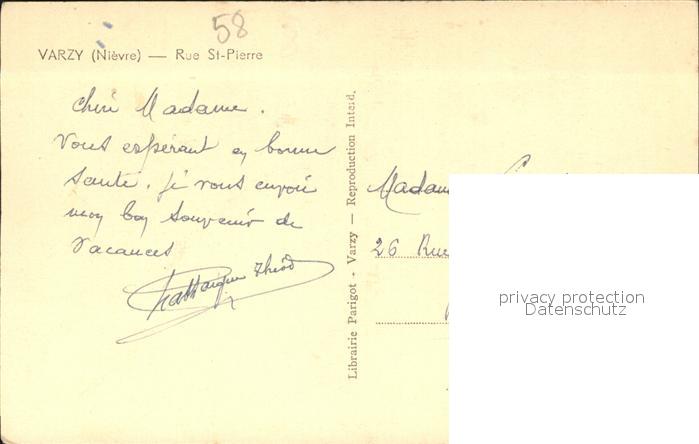 58
VARZY (Nièvre) — Rue St-Pierre
Chère Madame.
Vous espérant en bonne
santé. je vous envoie
mon bon souvenir de
Vacances
Théod
Librairie Parigot - Varzy — Reproduction Interd.
Madame
26 Rue
privacy protection
Datenschutz